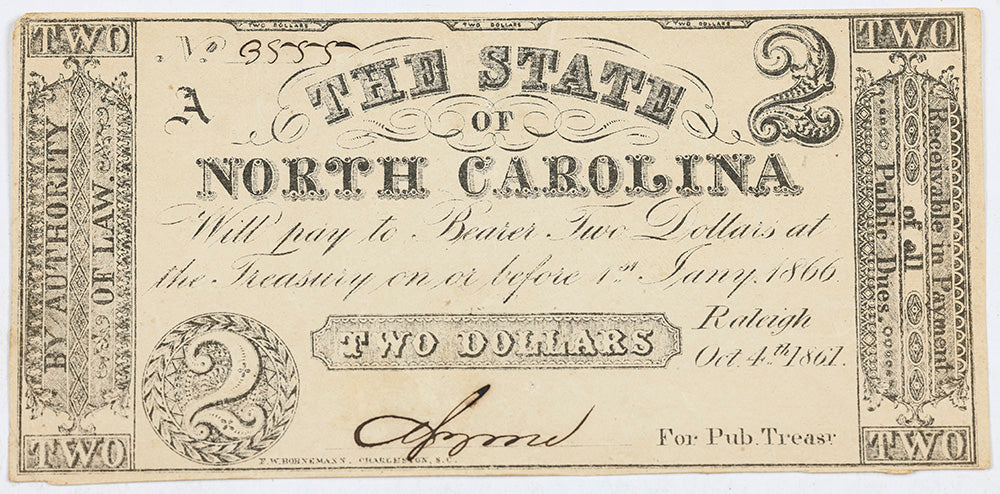 TWO DOLLARS TWO DOLLARS TWO DOLLARS
TWO
TWO
No. 3555
A
THE STATE
OF
NORTH CAROLINA
2
Will pay to Bearer Two Dollars at
the Treasury on or before 1st Jany. 1866
TWO DOLLARS
Raleigh
Oct. 4.th 1861.
2
For Pub. Treasr
F. W. BORNEMANN, CHARLESTON, S. C.
BY AUTHORITY
OF LAW.
Receivable in Payment
of all
Public Dues.
TWO
TWO